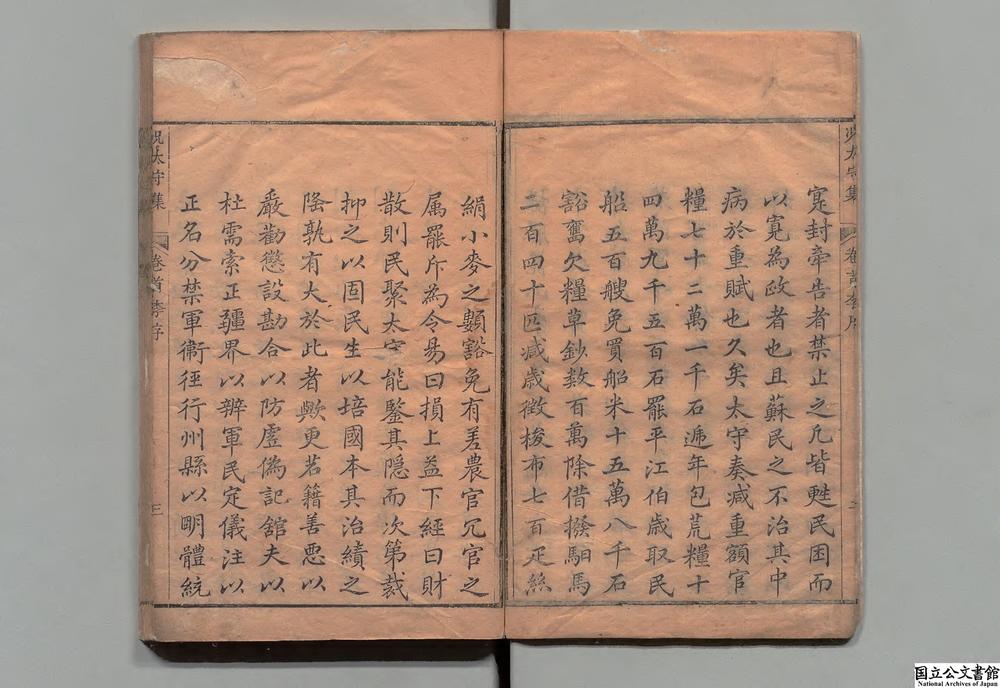 况太守集 卷首李序 二
寔封牽告者禁止之凡皆甦民困而
以寛為政者也且蘇民之不治其中
病於重賦也久矣太守奏减重額官
糧七十二萬一千石逓年包荒糧十
四萬九千五百石罷平江伯歳取民
船五百艘免買船米十五萬八千石
豁舊欠糧草鈔数百萬除借撥馹馬
二百四十匹减歳徴梭布七百疋絲
絹小麥之顟豁免有差農官冗官之
属罷斥為令易曰損上益下經曰財
散則民聚太守能鑒其隐而次第裁
抑之以固民生以培國本其治績之
隆孰有大於此者歟更若籍善悪以
嚴勸懲設勘合以防虗偽記舘夫以
杜需索正疆界以辨軍民定儀注以
正名分禁軍衛徑行州縣以明體統
况太守集 卷首李序 三
国立公文書館
National Archives of Japan